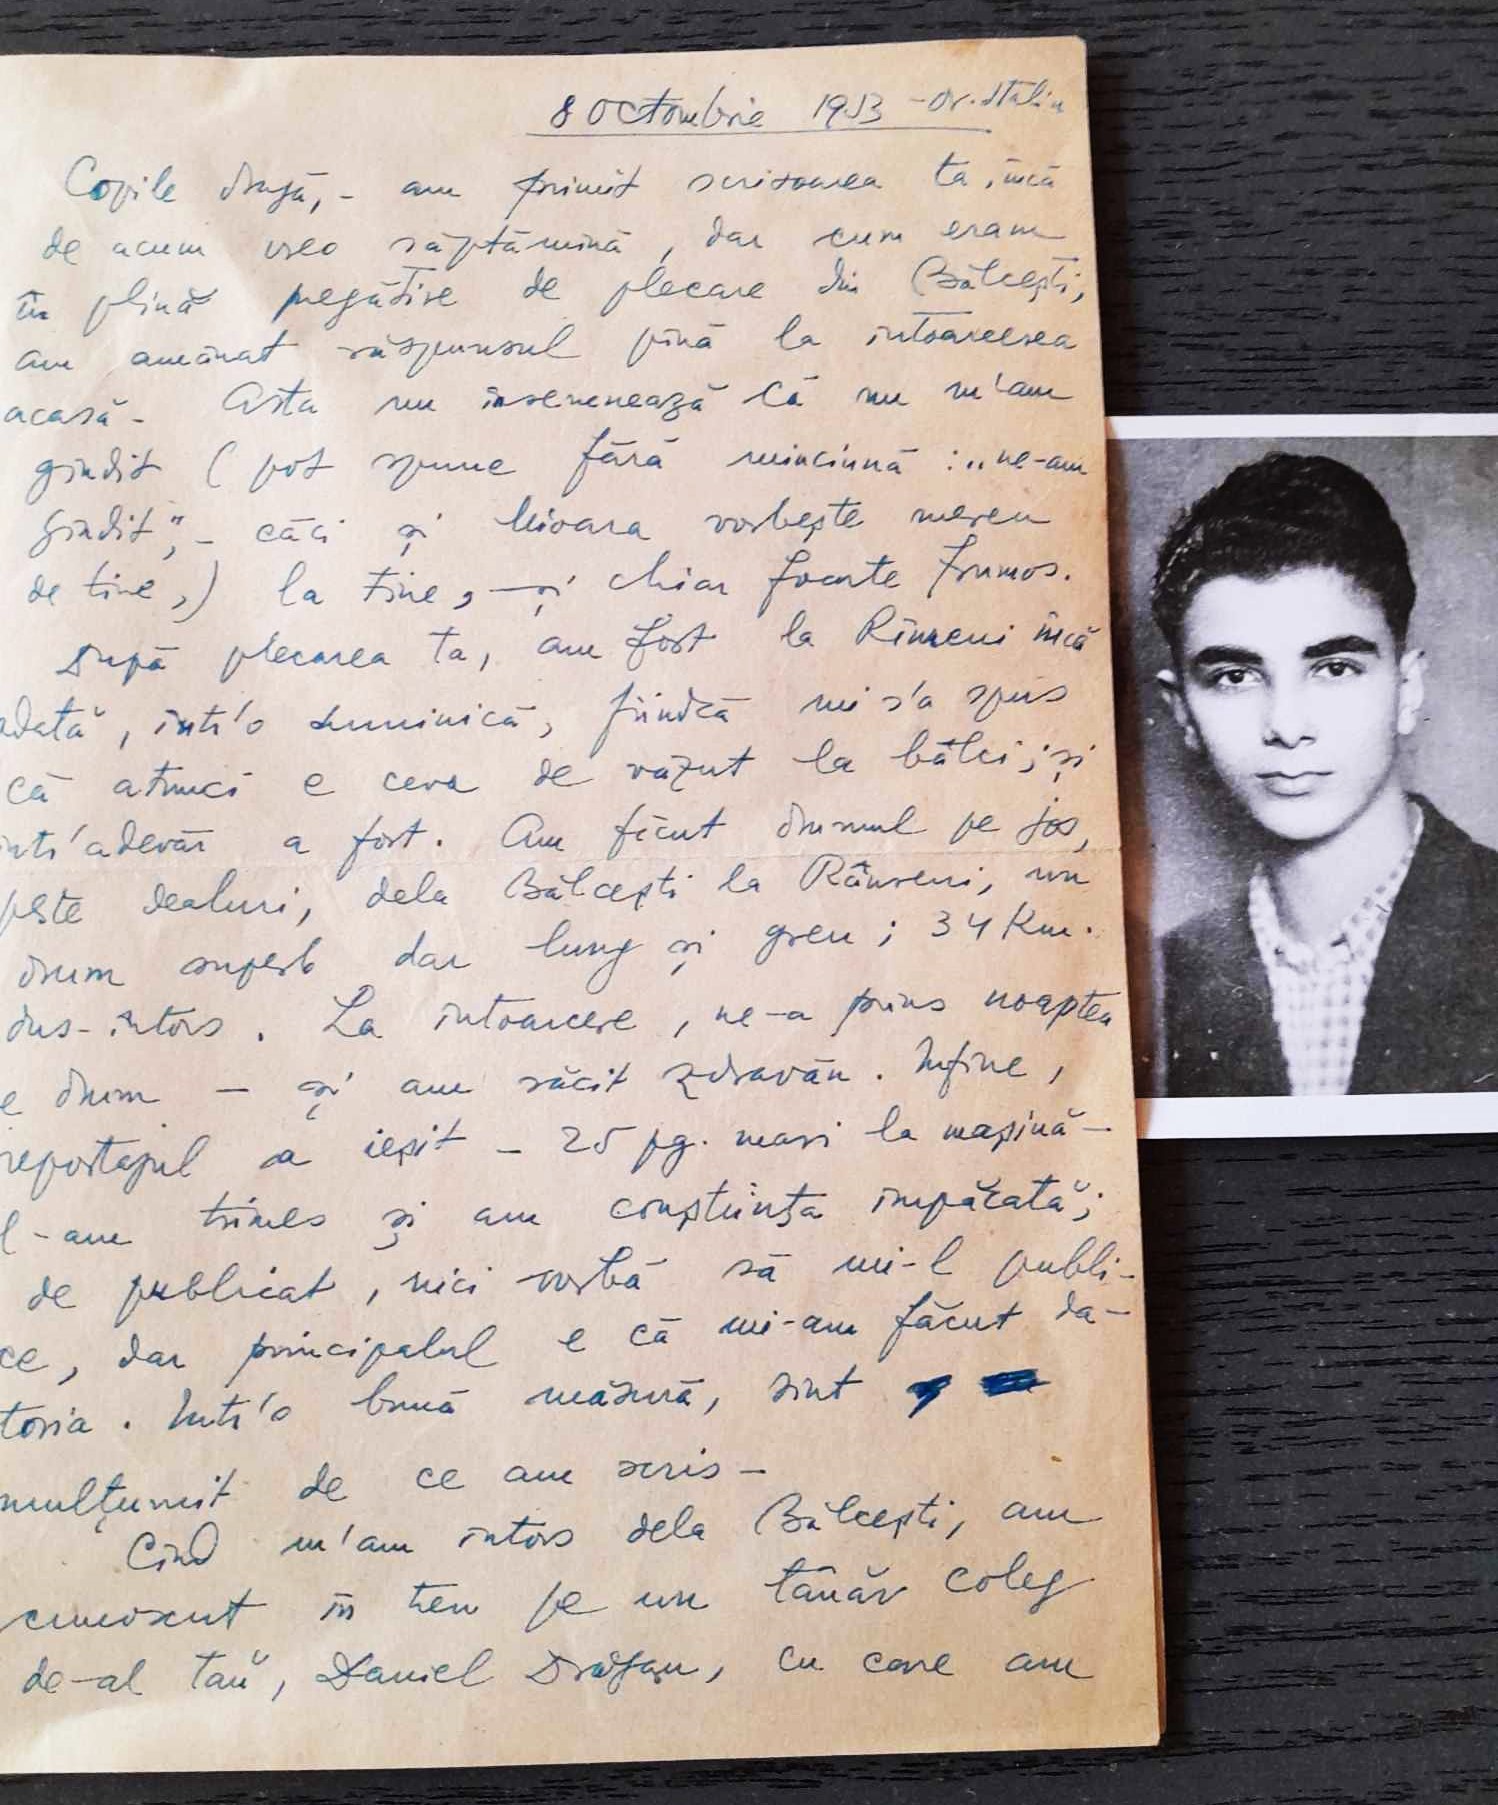 8 Octombrie 1953 - Or. Stalin
Copile dragă, - am primit scrisoarea ta, încă
de acum vreo săptămînă, dar cum eram
în plină pregătire de plecare din Bălcești,
am amânat răspunsul pînă la intoarcerea
acasă - Asta nu însemnează că nu m'am
gîndit ( pot spune fără minciună : „ne-am
gîndit", - căci și Mioara vorbește mereu
de tine,) la tine, - și chiar foarte frumos.
După plecarea ta, am fost la Rîureni încă
odată, într'o duminică, fiindcă mi s'a spus
că atunci e ceva de văzut la bâlci; și
intr'adevăr a fost. Am făcut drumul pe jos,
peste dealuri, dela Bălcești la Râureni, un
drum superb dar lung și greu; 34 Km.
dus-intors. La intoarcere, ne-a prins noaptea
e drum - și am răcit zdravăn. Infine,
reportajul a ieșit - 25 pg. mari la mașină -
l-am trimes și am conștiința impăcată;
de publicat, nici vorbă să mi-l publi-
ce, dar principalul e că mi-am făcut da-
toria. Intr'o bună măsură, sint
mulțumit de ce am scris -
Cind m'am intors dela Bălcești, am
cunoscut în tren pe un tânăr coleg
de-al tău, Daniel Drăgan, cu care am